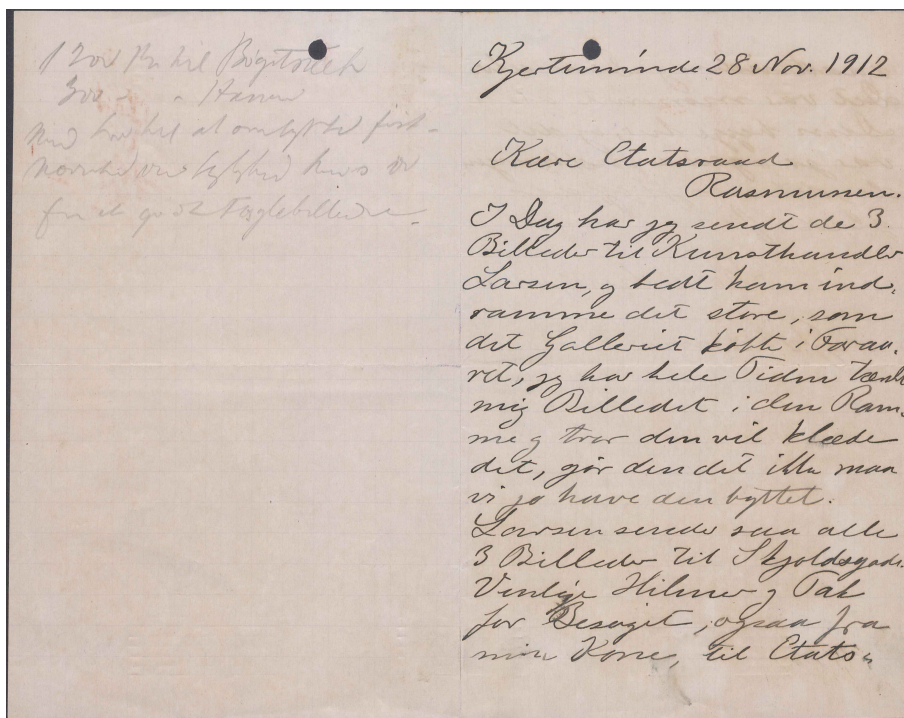 1200 Kr til Bøgetræet
300 - - Hanen
med
fra et godt Fuglebillede
Kjerteminde 28 Nov. 1912
Kære Etatsraad
Rasmussen.
I Dag har jeg sendt de 3
Billeder til Kunsthandler
Larsen, og bedt ham ind-
ramme det store, som
det Galleriet købte i Foraa-
ret, jeg har hele Tiden tænkt
mig Billedet i den Ram-
me og tror den vil klæde
det, gør den det ikke maa
vi jo have den byttet.
Larsen sender saa alle
3 Billeder til Skjoldsgade.
Venlige Hilsner og Tak
for Besøget, ogsaa fra
min Kone, til Etats-